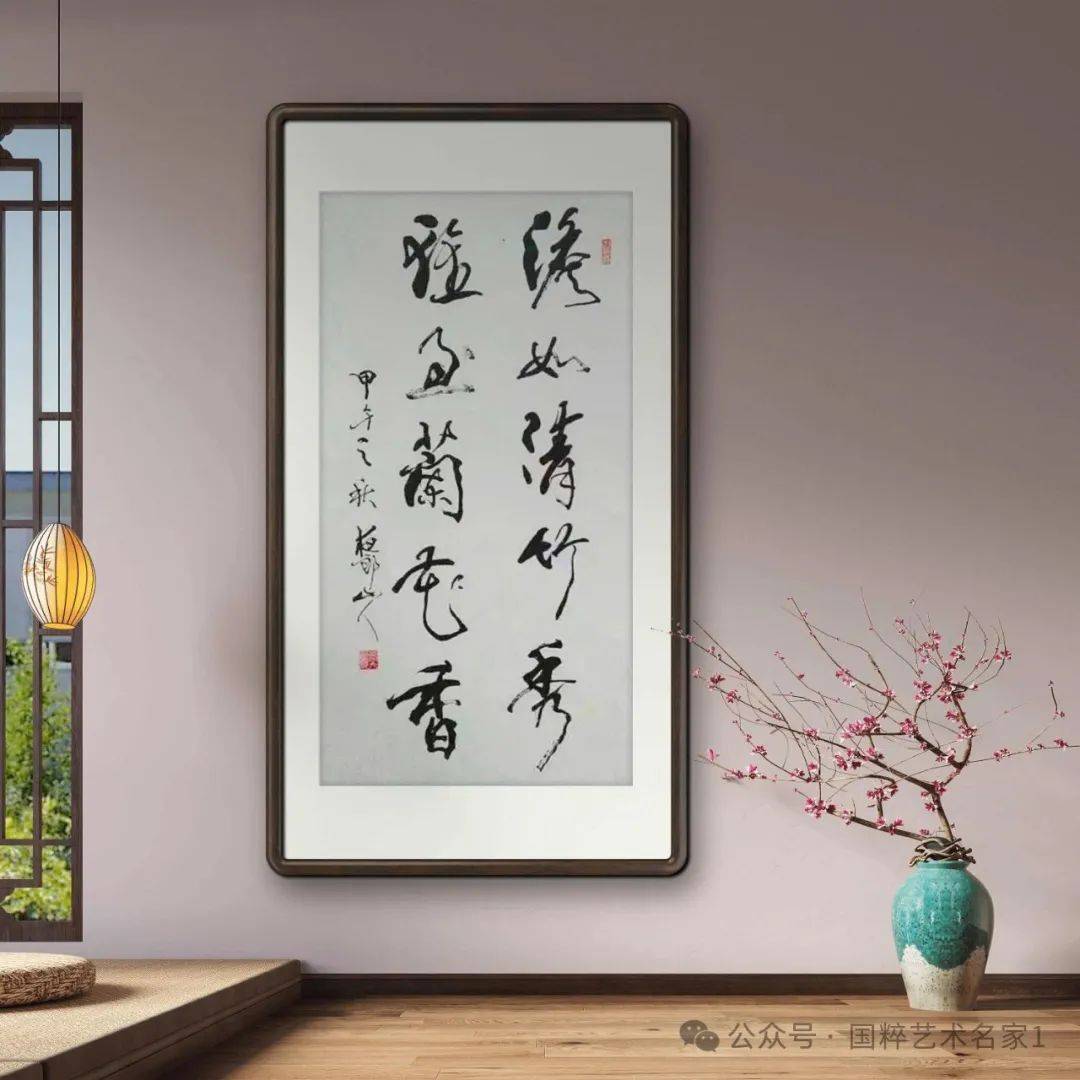 澹如清竹秀
雅過蘭花香
甲午之秋 山人
公众号 · 国粹艺术名家1